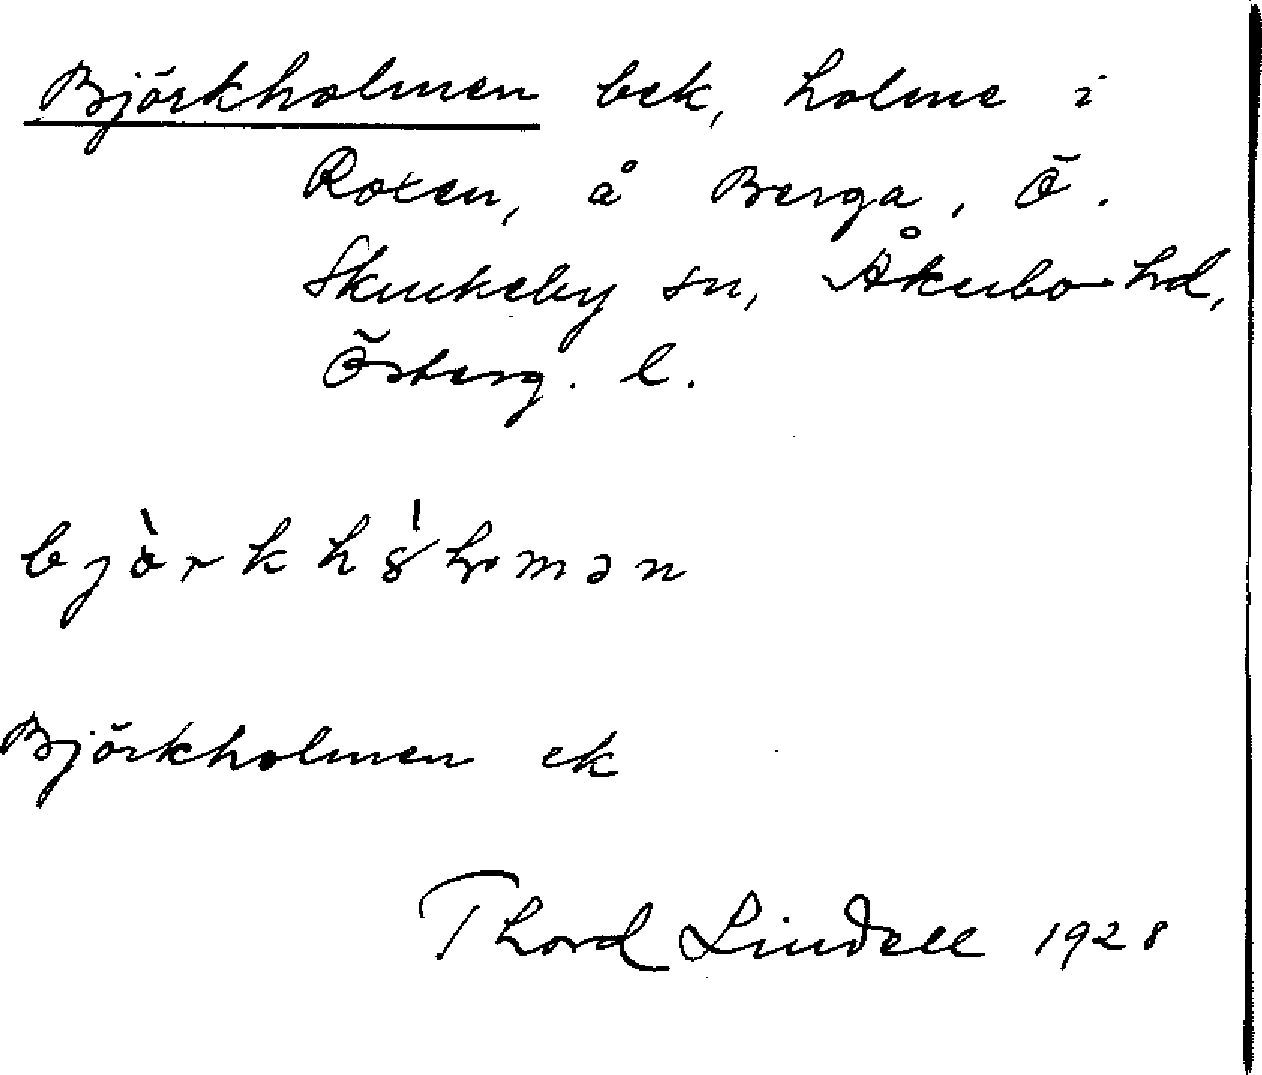 Björkholmen bek, holme i
Roxen, å Berga, Ö.
Skrukeby sn, Åkerbo hd,
Österg. l.
Björkholmen ek
Thord Lindell 1928